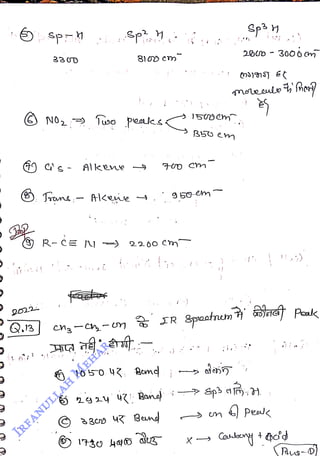 ⑤ Sp-H Sp² H Sp³ H
3300 3100 cm⁻ 2800 - 3000 cm⁻
molecule में मिलती
है
⑥ NO₂ ⇒ Two peaks 1500 cm⁻
1350 cm
⑦ Cis - Alkene → 700 cm⁻
⑧ Trans - Alkene → 950 cm⁻
Imp
⑨ R-C≡N → 2200 cm⁻
2022
Q.13 CH₃-CH₂-OH के IR Spectrum में कौनसी Peak
प्राप्त नहीं होगी :-
Ⓐ 1050 पर Band :→
Ⓑ 2924 पर Band :→ Sp³ H
Ⓒ 3300 पर Band → OH की Peak
Ⓓ 1730 X →
Ans-D
IRFANULLAH MEHAR